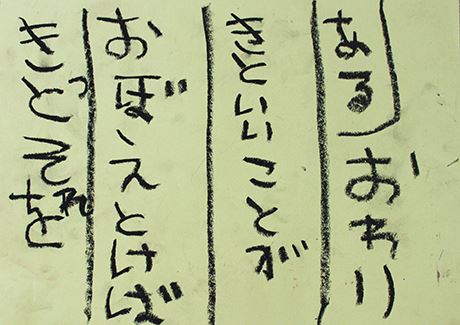 きっとそれを
おぼえとけば
きといいことが
ある）おわり